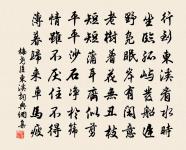 行到東溪看水時
坐臨孤嶼發船遲
野鳧眠岸有閑意
老樹着花無醜枝
短短蒲茸齊似剪
平平沙石淨於篩
情雖不厭住不得
薄暮歸來車馬疲
梅堯臣東溪詞典網